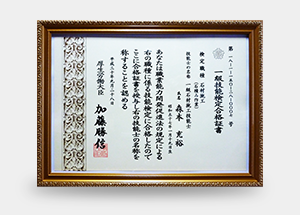 一級技能検定合格証書
検定職種
石材施工
(石張り作業)
技能士の名称
一級石材施工技能士
森本 克裕
あなたは職業能力開発促進法の規定による
右の職種に係る技能検定に合格したので
ここに合格証書を授与し右の技能士の名称を
称することを認める
厚生労働大臣
加藤勝信